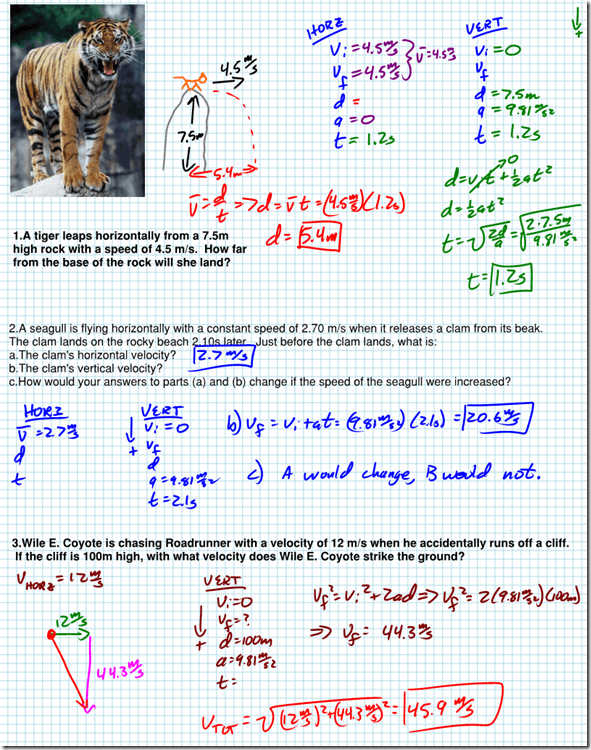 HORZ
Vi = 4.5 m/s
Vf = 4.5 m/s
V̄ = 4.5 m/s
d =
a = 0
t = 1.2s
VERT
Vi = 0
Vf
d = 7.5m
a = 9.81 m/s²
t = 1.2s
+
4.5 m/s
7.5m
5.4m
V̄ = d/t => d = V̄t = (4.5 m/s)(1.2s)
d = 5.4m
d = Vit + ½at²
0
d = ½at²
t = √(2d/a) = √(2·7.5m/9.81 m/s²)
t = 1.2s
1.A tiger leaps horizontally from a 7.5m
high rock with a speed of 4.5 m/s. How far
from the base of the rock will she land?
2.A seagull is flying horizontally with a constant speed of 2.70 m/s when it releases a clam from its beak.
The clam lands on the rocky beach 2.10s later. Just before the clam lands, what is:
a.The clam's horizontal velocity? 2.7 m/s
b.The clam's vertical velocity?
c.How would your answers to parts (a) and (b) change if the speed of the seagull were increased?
HORZ
V̄ = 2.7 m/s
d
t
VERT
Vi = 0
Vf
+
d
a = 9.81 m/s²
t = 2.1s
b) Vf = Vi + at = (9.81 m/s²)(2.1s) = 20.6 m/s
c) A would change, B would not.
3.Wile E. Coyote is chasing Roadrunner with a velocity of 12 m/s when he accidentally runs off a cliff.
If the cliff is 100m high, with what velocity does Wile E. Coyote strike the ground?
VHORZ = 12 m/s
12 m/s
44.3 m/s
VERT
Vi = 0
Vf = ?
+
d = 100m
a = 9.81 m/s²
t =
Vf² = Vi² + 2ad => Vf² = 2(9.81 m/s²)(100m)
=> Vf = 44.3 m/s
VTOT = √((12 m/s)² + (44.3 m/s)²) = 45.9 m/s